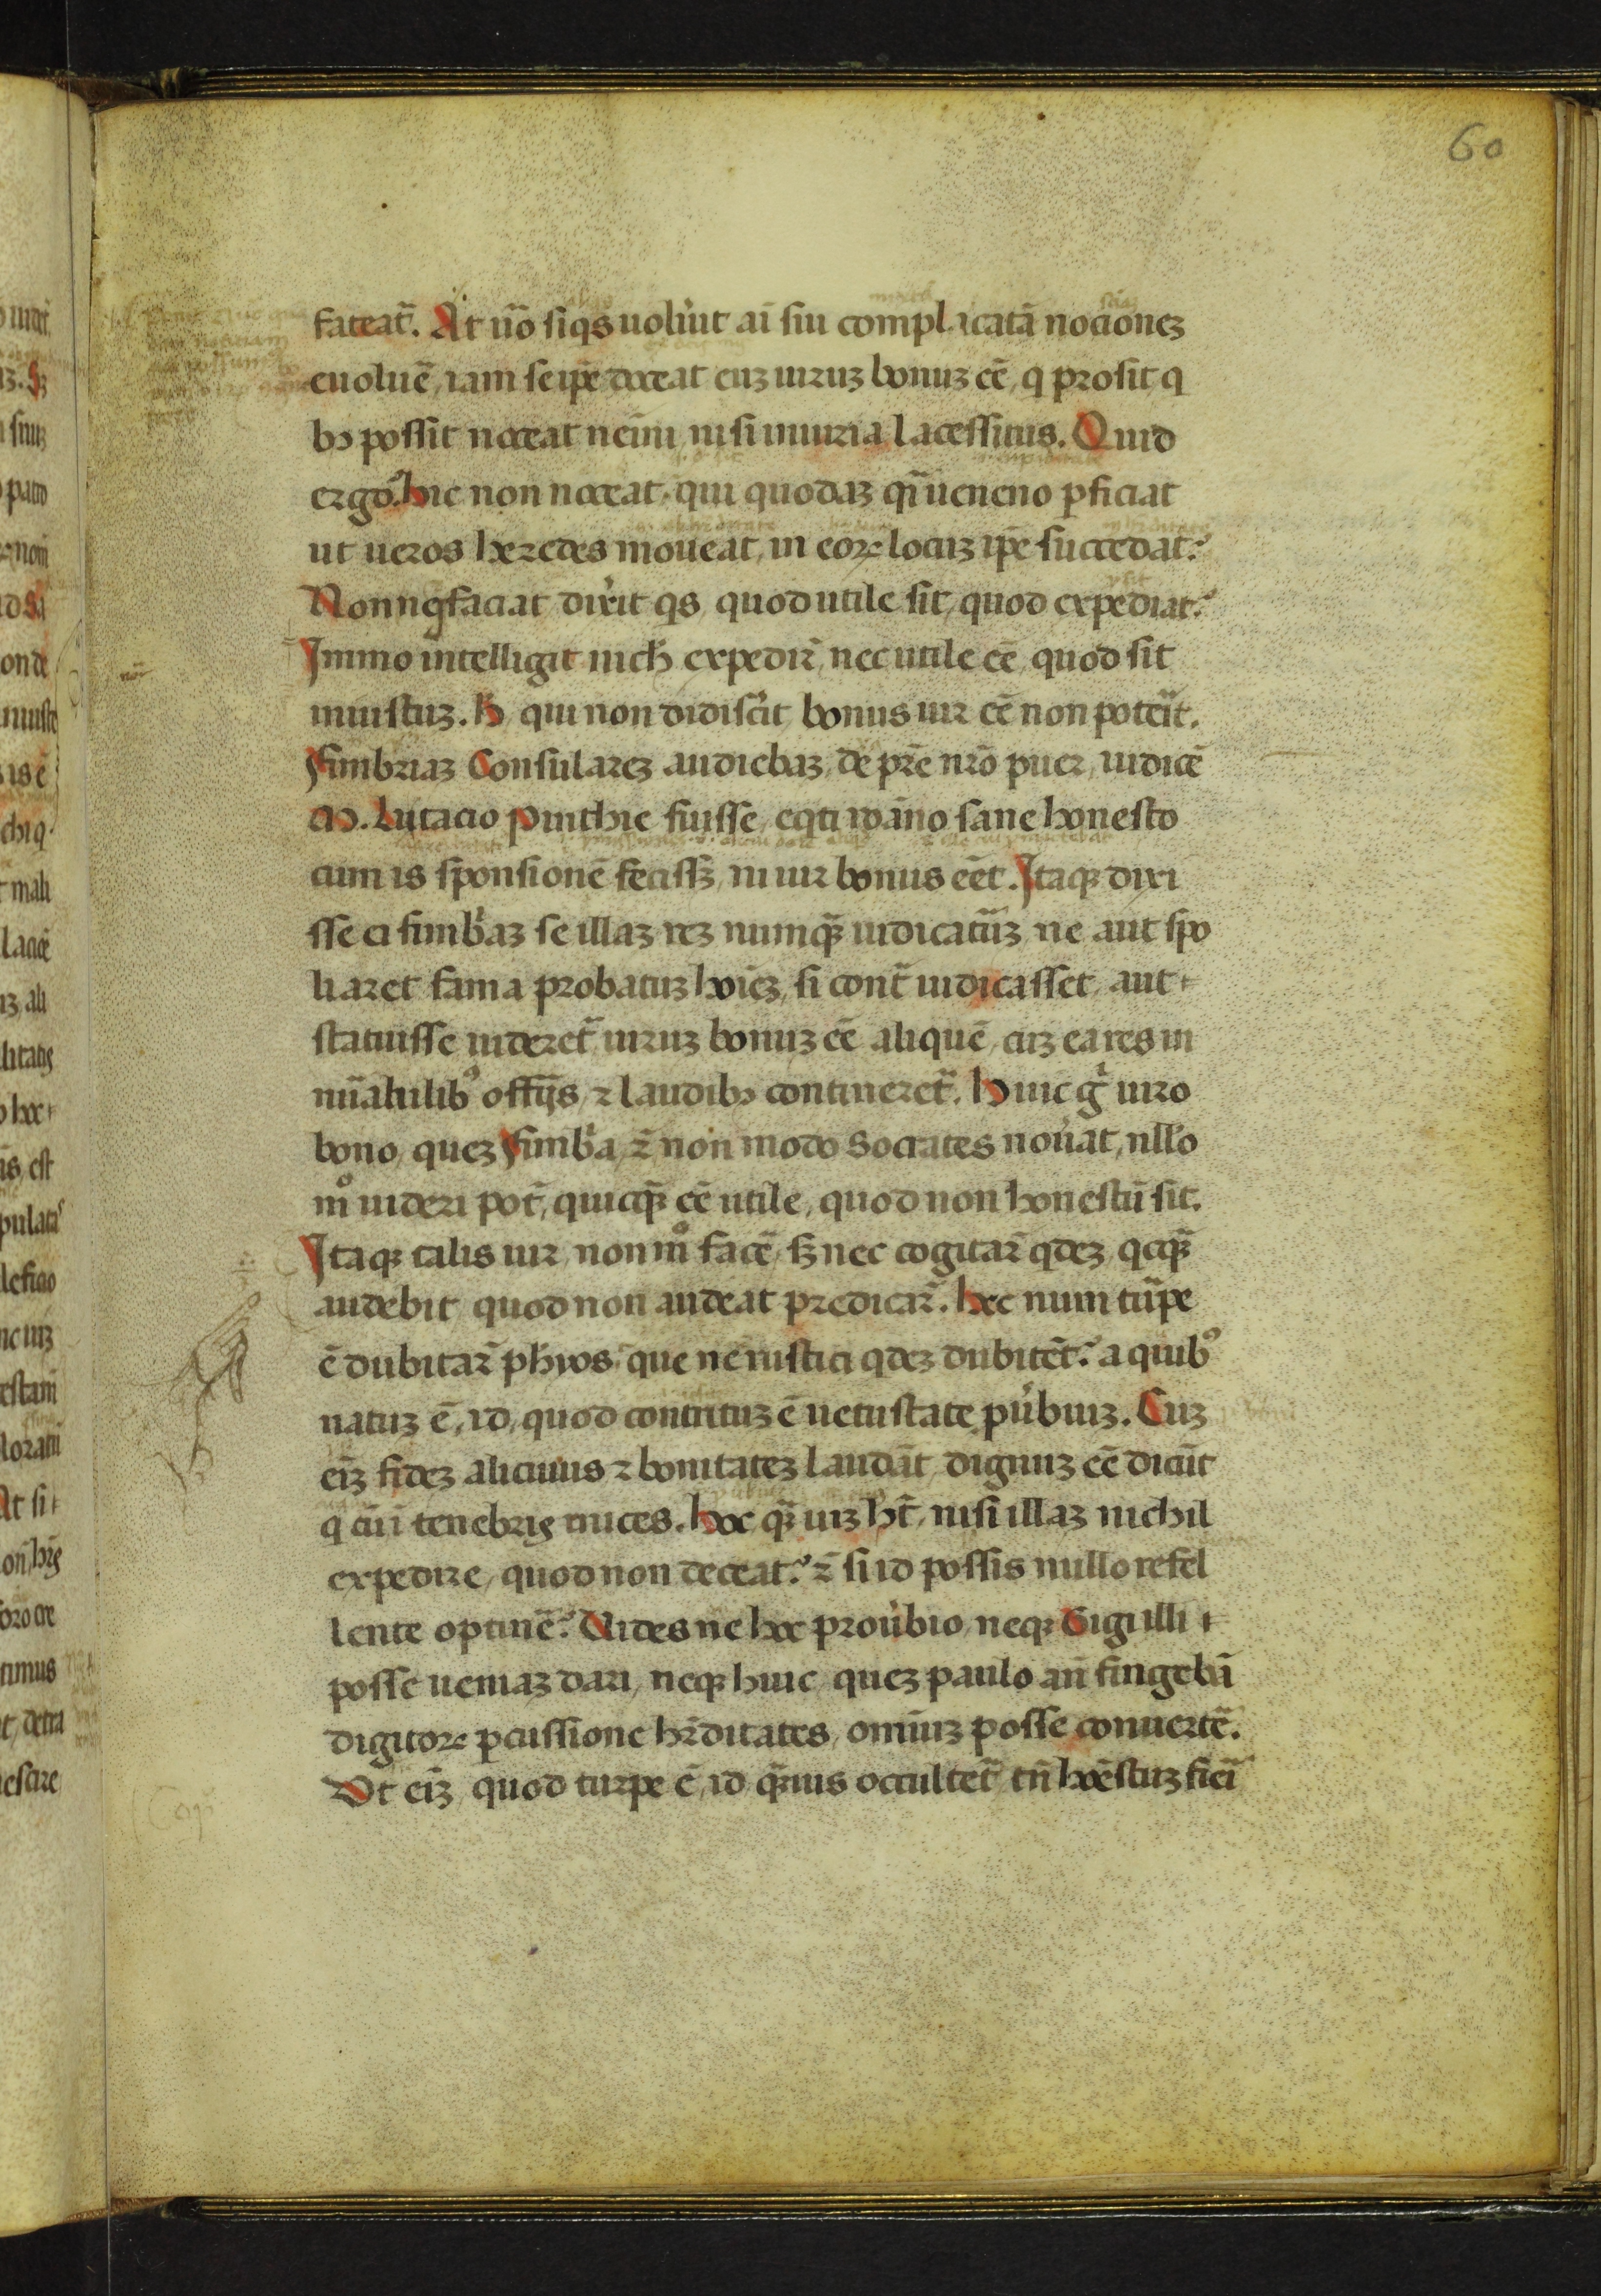 60
fateat᷑. At ũo siqs uolu̾it ai᷑ sui complicatã nocioneꝫ
euoluẽ, iam seip̃e doceat euꝫ uiruꝫ bonuꝫ eẽ, q prosit q
bꝫ possit noceat nem̃i nisi iniuria lacessitus. Quid
ergo? hic non noceat, qui quodaꝫ q̃i ueneno ꝑficiat
ut ueros heredes moueat, in eoꝝ locuꝫ ip̃e succedat?
Non ngͥ faciat dix̾it qs, quod utile sit, quod expediat?
Immo intelligit nich̃ expedir̃, nec utile eẽ, quod sit
iniustuꝫ. H̾ qui non didisc̾it bonus uir eẽ non pot̾it.
Fimbriaꝫ Consulareꝫ audiebaꝫ, de pr̃e nr̃o puer, iudicẽ
M. Lutacio Pinthie fuisse, eqͥti ro̾ano sane honesto
cum is sponsionẽ feciss̾ꝫ, ni uir bonus eẽt. Itaqꝫ dixi
sse ei fimb̾aꝫ se illaꝫ reꝫ numqꝫ̃ iudicatu᷑ꝫ ne aut spo
liaret fama probatuꝫ ho̾ieꝫ, si cont᷑ iudicasset, aut
statuisse uideret᷑ uiruꝫ bonuꝫ eẽ aliquẽ, cuꝫ ea res in
nũabilibꝰ offij̃s, ⁊ laudibꝫ contineret᷑. Huic gͥ uiro
bono, queꝫ Fimb̾a, ⁊̃ non modo Socrates nou̾at, nll̾o
mͦ uideri pot̃, quicqꝫ̃ eẽ utile, quod non honestũ sit.
Itaqꝫ talis uir non mͦ facẽ, sꝫ nec cogitar̃ qͥdeꝫ qͥcqꝫ̃
audebit quod non audeat predicar̃. Hec num tu᷑pe
ẽ dubitar̃ ph̃os, que ne rustici qͥdeꝫ dubitẽt? a quibꝰ
natuꝫ ẽ, id, quod contrituꝫ ẽ uetustate pu̾buꝫ. Cuꝫ
ei̾ꝫ fideꝫ alicuius ⁊ bonitateꝫ laudãt, dignuꝫ eẽ dicũt
q cũ in tenebris mices. hoc qꝫ̃ uiꝫ ht̃, nisi illaꝫ nichil
expedire, quod non deceat? ⁊̃ si id possis nullo refel
lente optinẽ? Vides ne hoc prou̾bio, neqꝫ Gigi illi
posse ueniaꝫ dari, neqꝫ huic queꝫ paulo añ fingebã
digitoꝝ ꝑcussione h̾editates, omniuꝫ posse conuertẽ.
Vt ei̾ꝫ quod turpe ẽ, id qꝫ̃uis occultet᷑ tñ ho̾estuꝫ fie᷑i